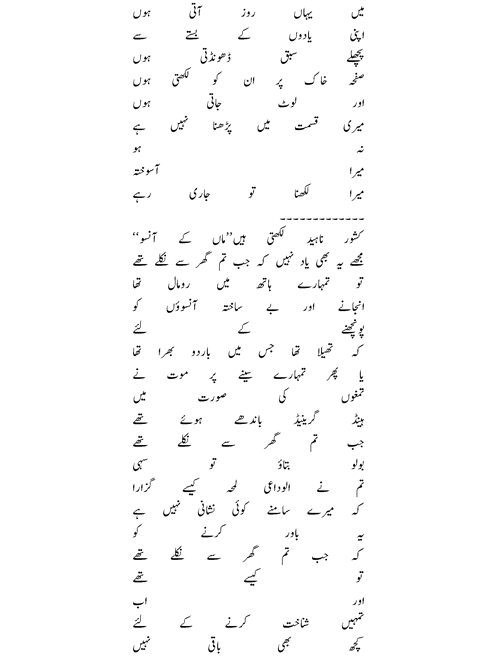 میں یہاں روز آتی ہوں
اپنی یادوں کے بستے سے
پچھلے سبق ڈھونڈتی ہوں
صفحہ خاک پر ان کو لکھتی ہوں
اور لوٹ جاتی ہوں
میری قسمت میں پڑھنا نہیں ہے
نہ ہو
میرا آسوختہ
میرا لکھنا تو جاری رہے
-------------
کشور ناہید لکھتی ہیں’’ماں کے آنسو‘‘
مجھے یہ بھی یاد نہیں کہ جب تم گھر سے نکلے تھے
تو تمہارے ہاتھ میں رومال تھا
انجانے اور بے ساختہ آنسوؤں کو
پونچھنے کے لئے
کہ تھیلا تھا جس میں باردو بھرا تھا
یا پھر تمہارے سینے پر موت نے
تمغوں کی صورت میں
ہینڈ گرینیڈ باندھے ہوئے تھے
جب تم گھر سے نکلے تھے
بولو بتاؤ تو سہی
تم نے الوداعی لمحہ کیسے گزارا
کہ میرے سامنے کوئی نشانی نہیں ہے
یہ باور کرنے کو
کہ جب تم گھر سے نکلے تھے
تو کیسے تھے
اور اب
تمہیں شناخت کرنے کے لئے
کچھ بھی باقی نہیں